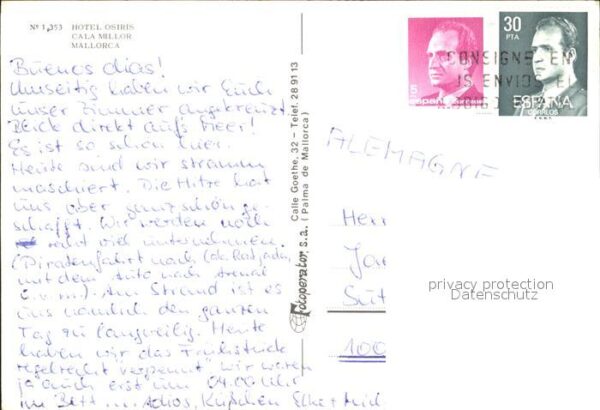 Nº 1,353 HOTEL OSIRIS
CALA MILLOR
MALLORCA
Buenos dias!
Umseitig haben wir Euch
unser Zimmer angekreuzt.
Blick direkt aufs Meer!
Es ist so schön hier.
Heute sind wir stramm
maschiert. Die Hitze hat
uns aber ganz schön ge-
schafft. Wir werden noch
recht viel unternehmen.
(Piratenfahrt nach Cala Ratjada,
mit dem Auto nach Arenal
u.v.m.) Am Strand ist es
uns nämlich den ganzen
Tag zu langweilig. Heute
haben wir das Frühstück
regelrecht verpennt, wir waren
ja auch erst um 04.00 Uhr
im Bett ... Adios, Küßchen Elke +
Fotoperator, S.A. Calle Goethe, 32 - Telef. 28 91 13
(Palma de Mallorca)
5
españa
30
PTA
ESPAÑA
CORREOS
CONSIGNE EN
IS ENVIOS EL
ALEMAGNE
Herr
Jan
Süt
100
privacy protection
Datenschutz